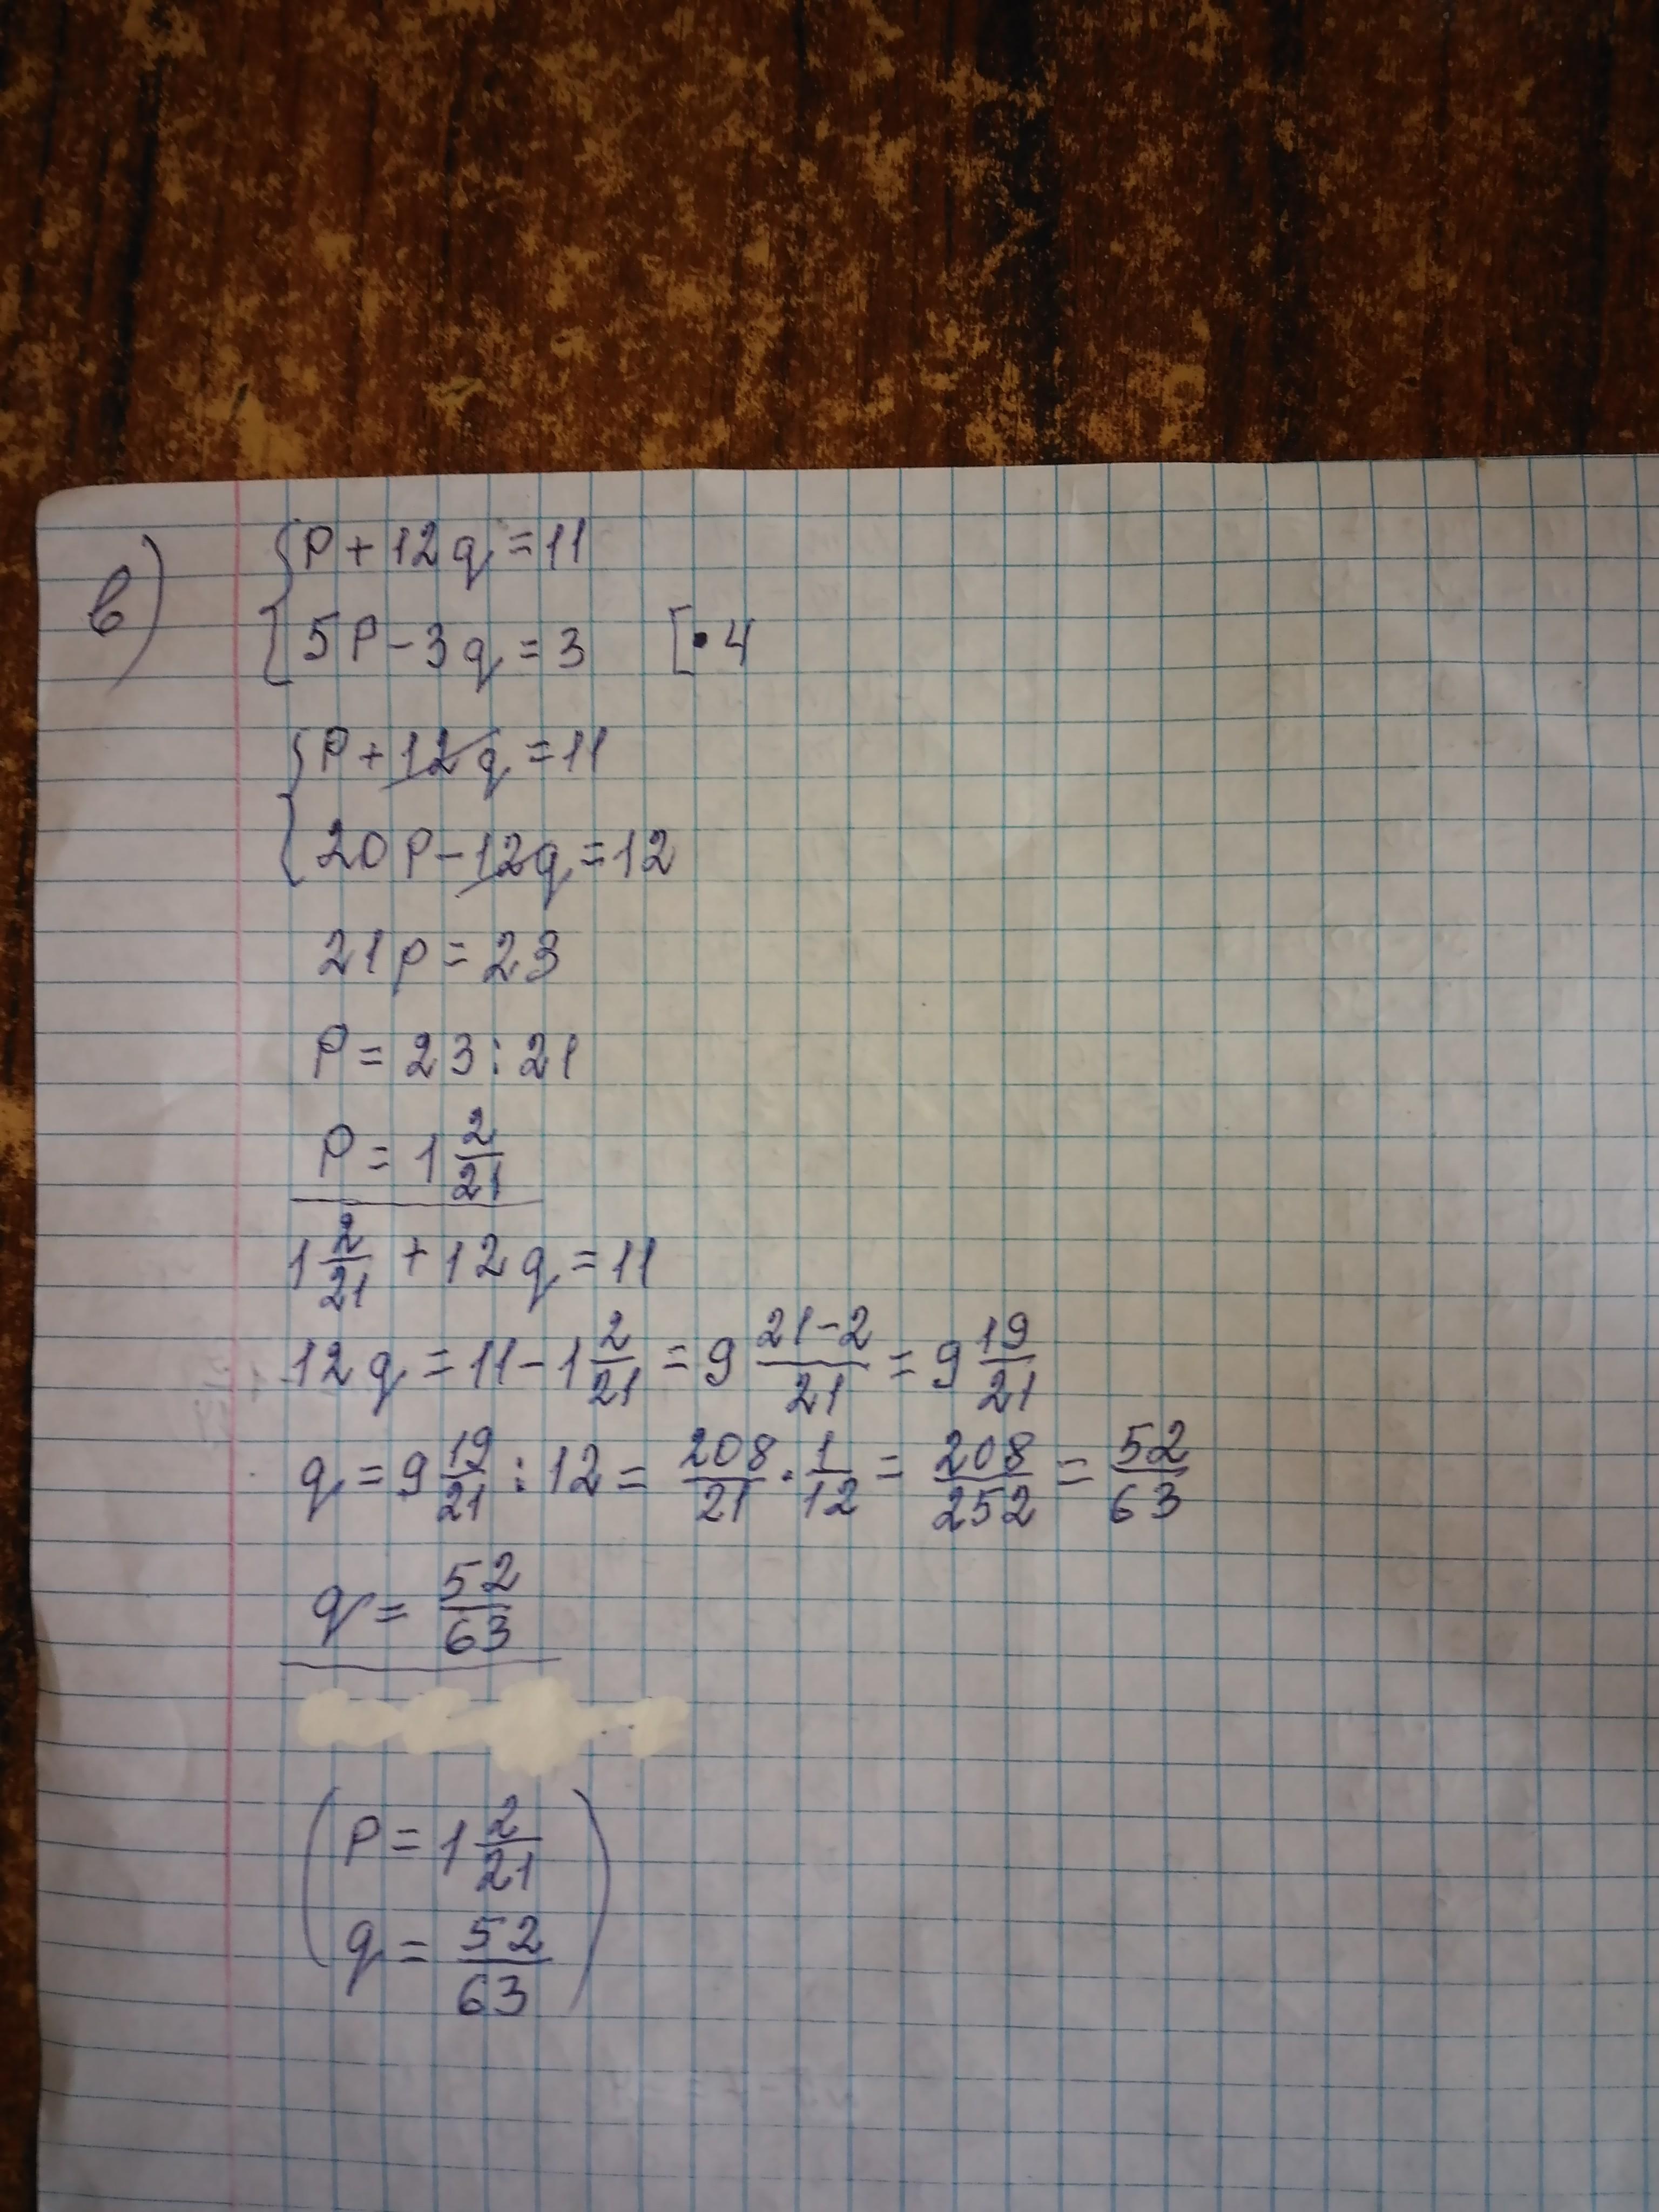 в)
{P + 12q = 11
{5P - 3q = 3 [• 4
{P + 12q = 11
{20P - 12q = 12
21p = 23
P = 23 : 21
P = 1 2/21
1 2/21 + 12q = 11
12q = 11 - 1 2/21 = 9 21-2/21 = 9 19/21
q = 9 19/21 : 12 = 208/21 · 1/12 = 208/252 = 52/63
q = 52/63
(P = 1 2/21
q = 52/63)